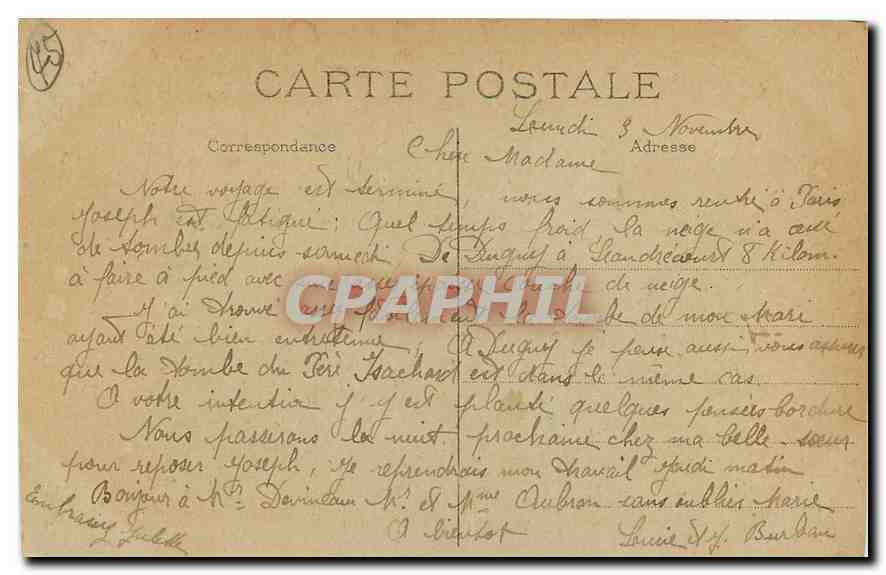 45
CARTE POSTALE
Lundi 3 Novembre
Correspondance
Adresse
Chère Madame
Notre voyage est terminé, nous sommes rentré à Paris,
Joseph est fatigué; Quel temps froid la neige n'a cessé
de tomber depuis samedi De Dugny à 8 Kilom.
à faire à pied avec une couche de neige.
J'ai trouvé tombe de mon Mari
ayant été bien entretenue, A Dugny je peux aussi vous assurer
que la tombe du Père est dans le même cas.
A votre intention j'y est planté quelques pensées bordure
Nous passerons la nuit prochaine chez ma belle-sœur
pour reposer Joseph, je reprendrais mon travail jeudi matin
Bonjour à Mr Devineau Mr et Mme Aubron sans oublier Marie
A bientot
CPAPHIL